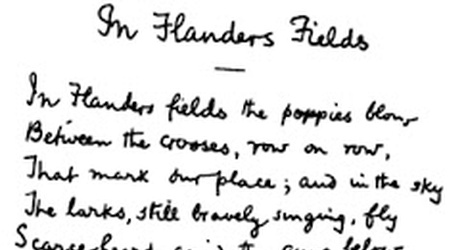 In Flanders Fields
In Flanders fields the poppies blow
Between the crosses, row on row,
That mark our place; and in the sky
The larks, still bravely singing, fly
Scarce heard amid the guns below.